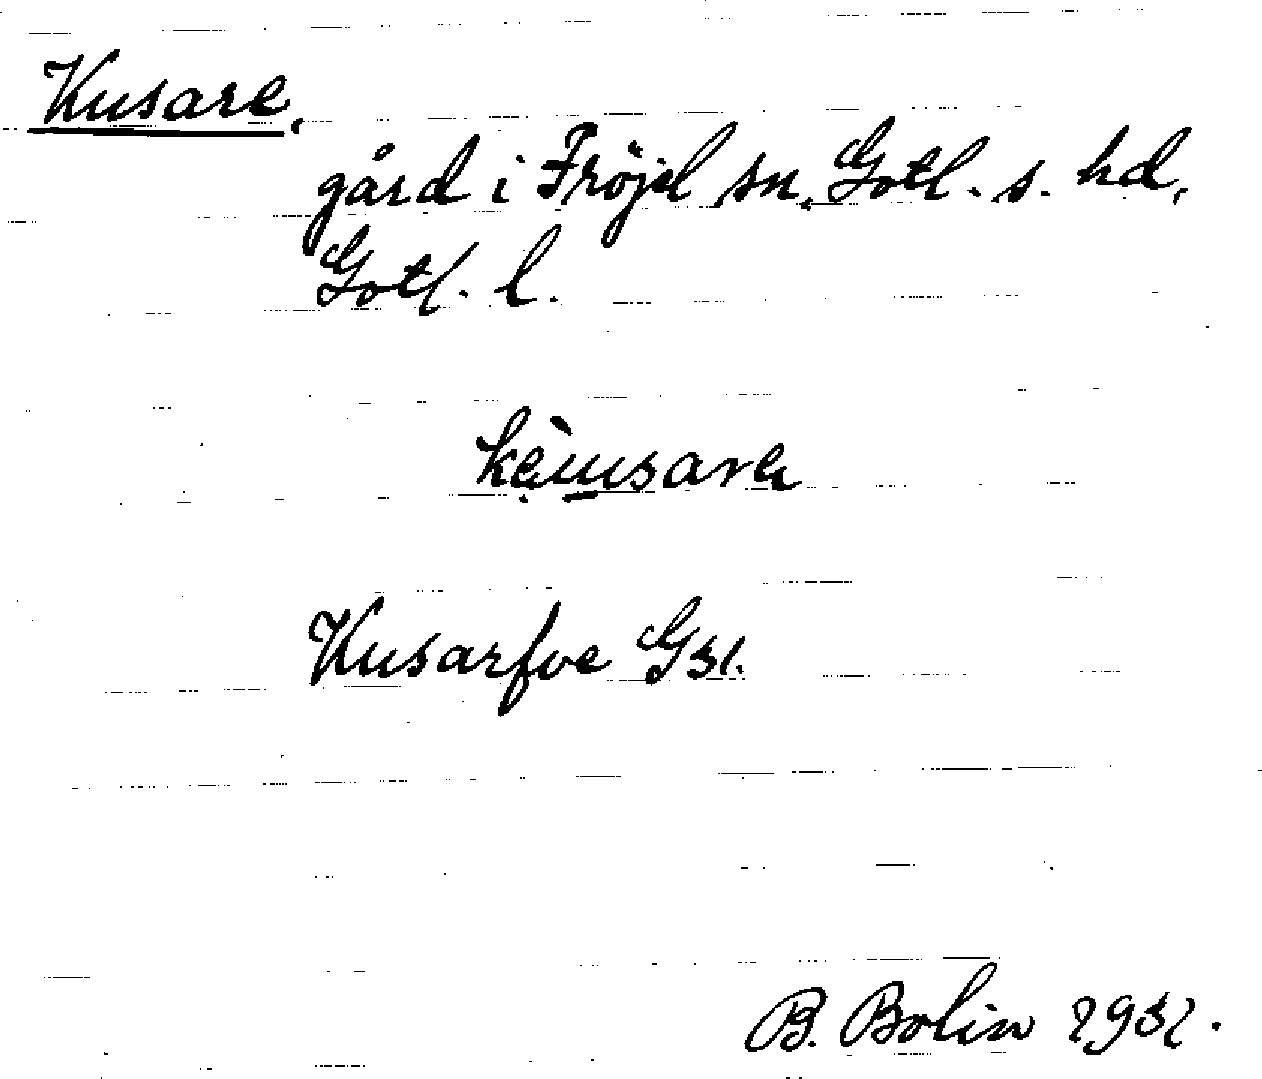 Kusare,
gård i Fröjel sn, Gotl. s. hd,
Gotl. l.
Kusarfve G31.
B. Bolin 1931.